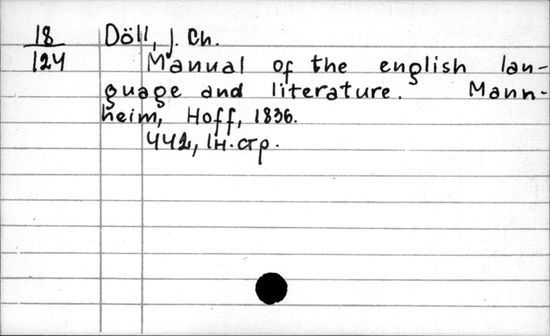 18 Döll, J. Ch.
124 Manual of the english lan-
guage and literature. Mann-
heim, Hoff, 1836.
442, 1н.стр.